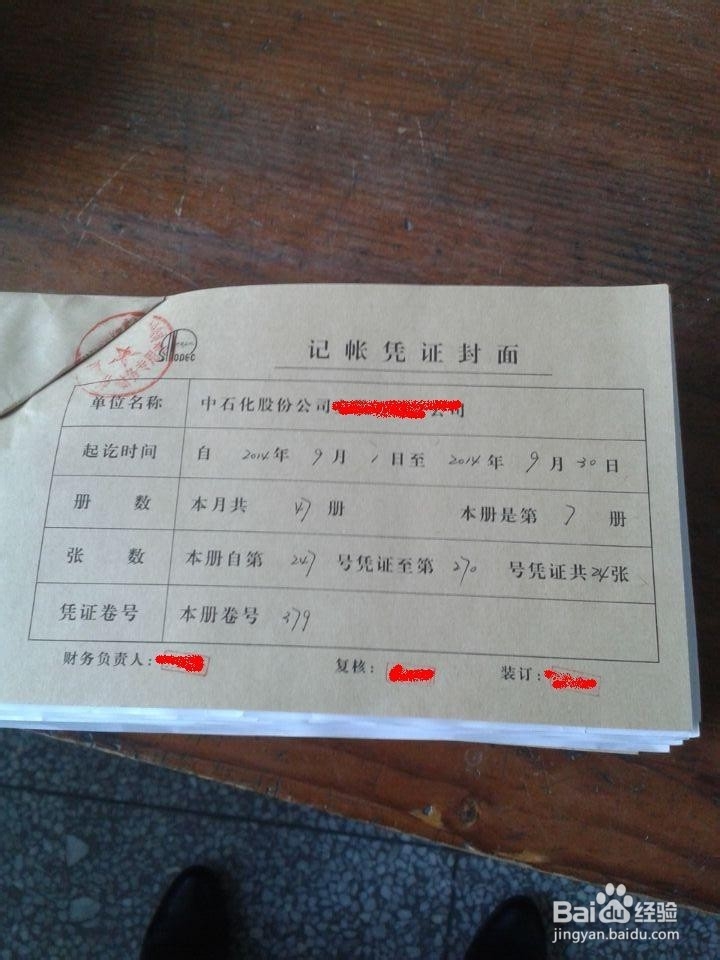 SINOPEC
记帐凭证封面
单位名称 中石化股份公司 公司
起讫时间 自 2014年 9月 1日至 2014年 9月30日
册 数 本月共 47 册 本册是第 7 册
张 数 本册自第 247 号凭证至第 270 号凭证共24张
凭证卷号 本册卷号 379
财务负责人: 复核: 装订:
Baidu 经验
jingyan.baidu.com